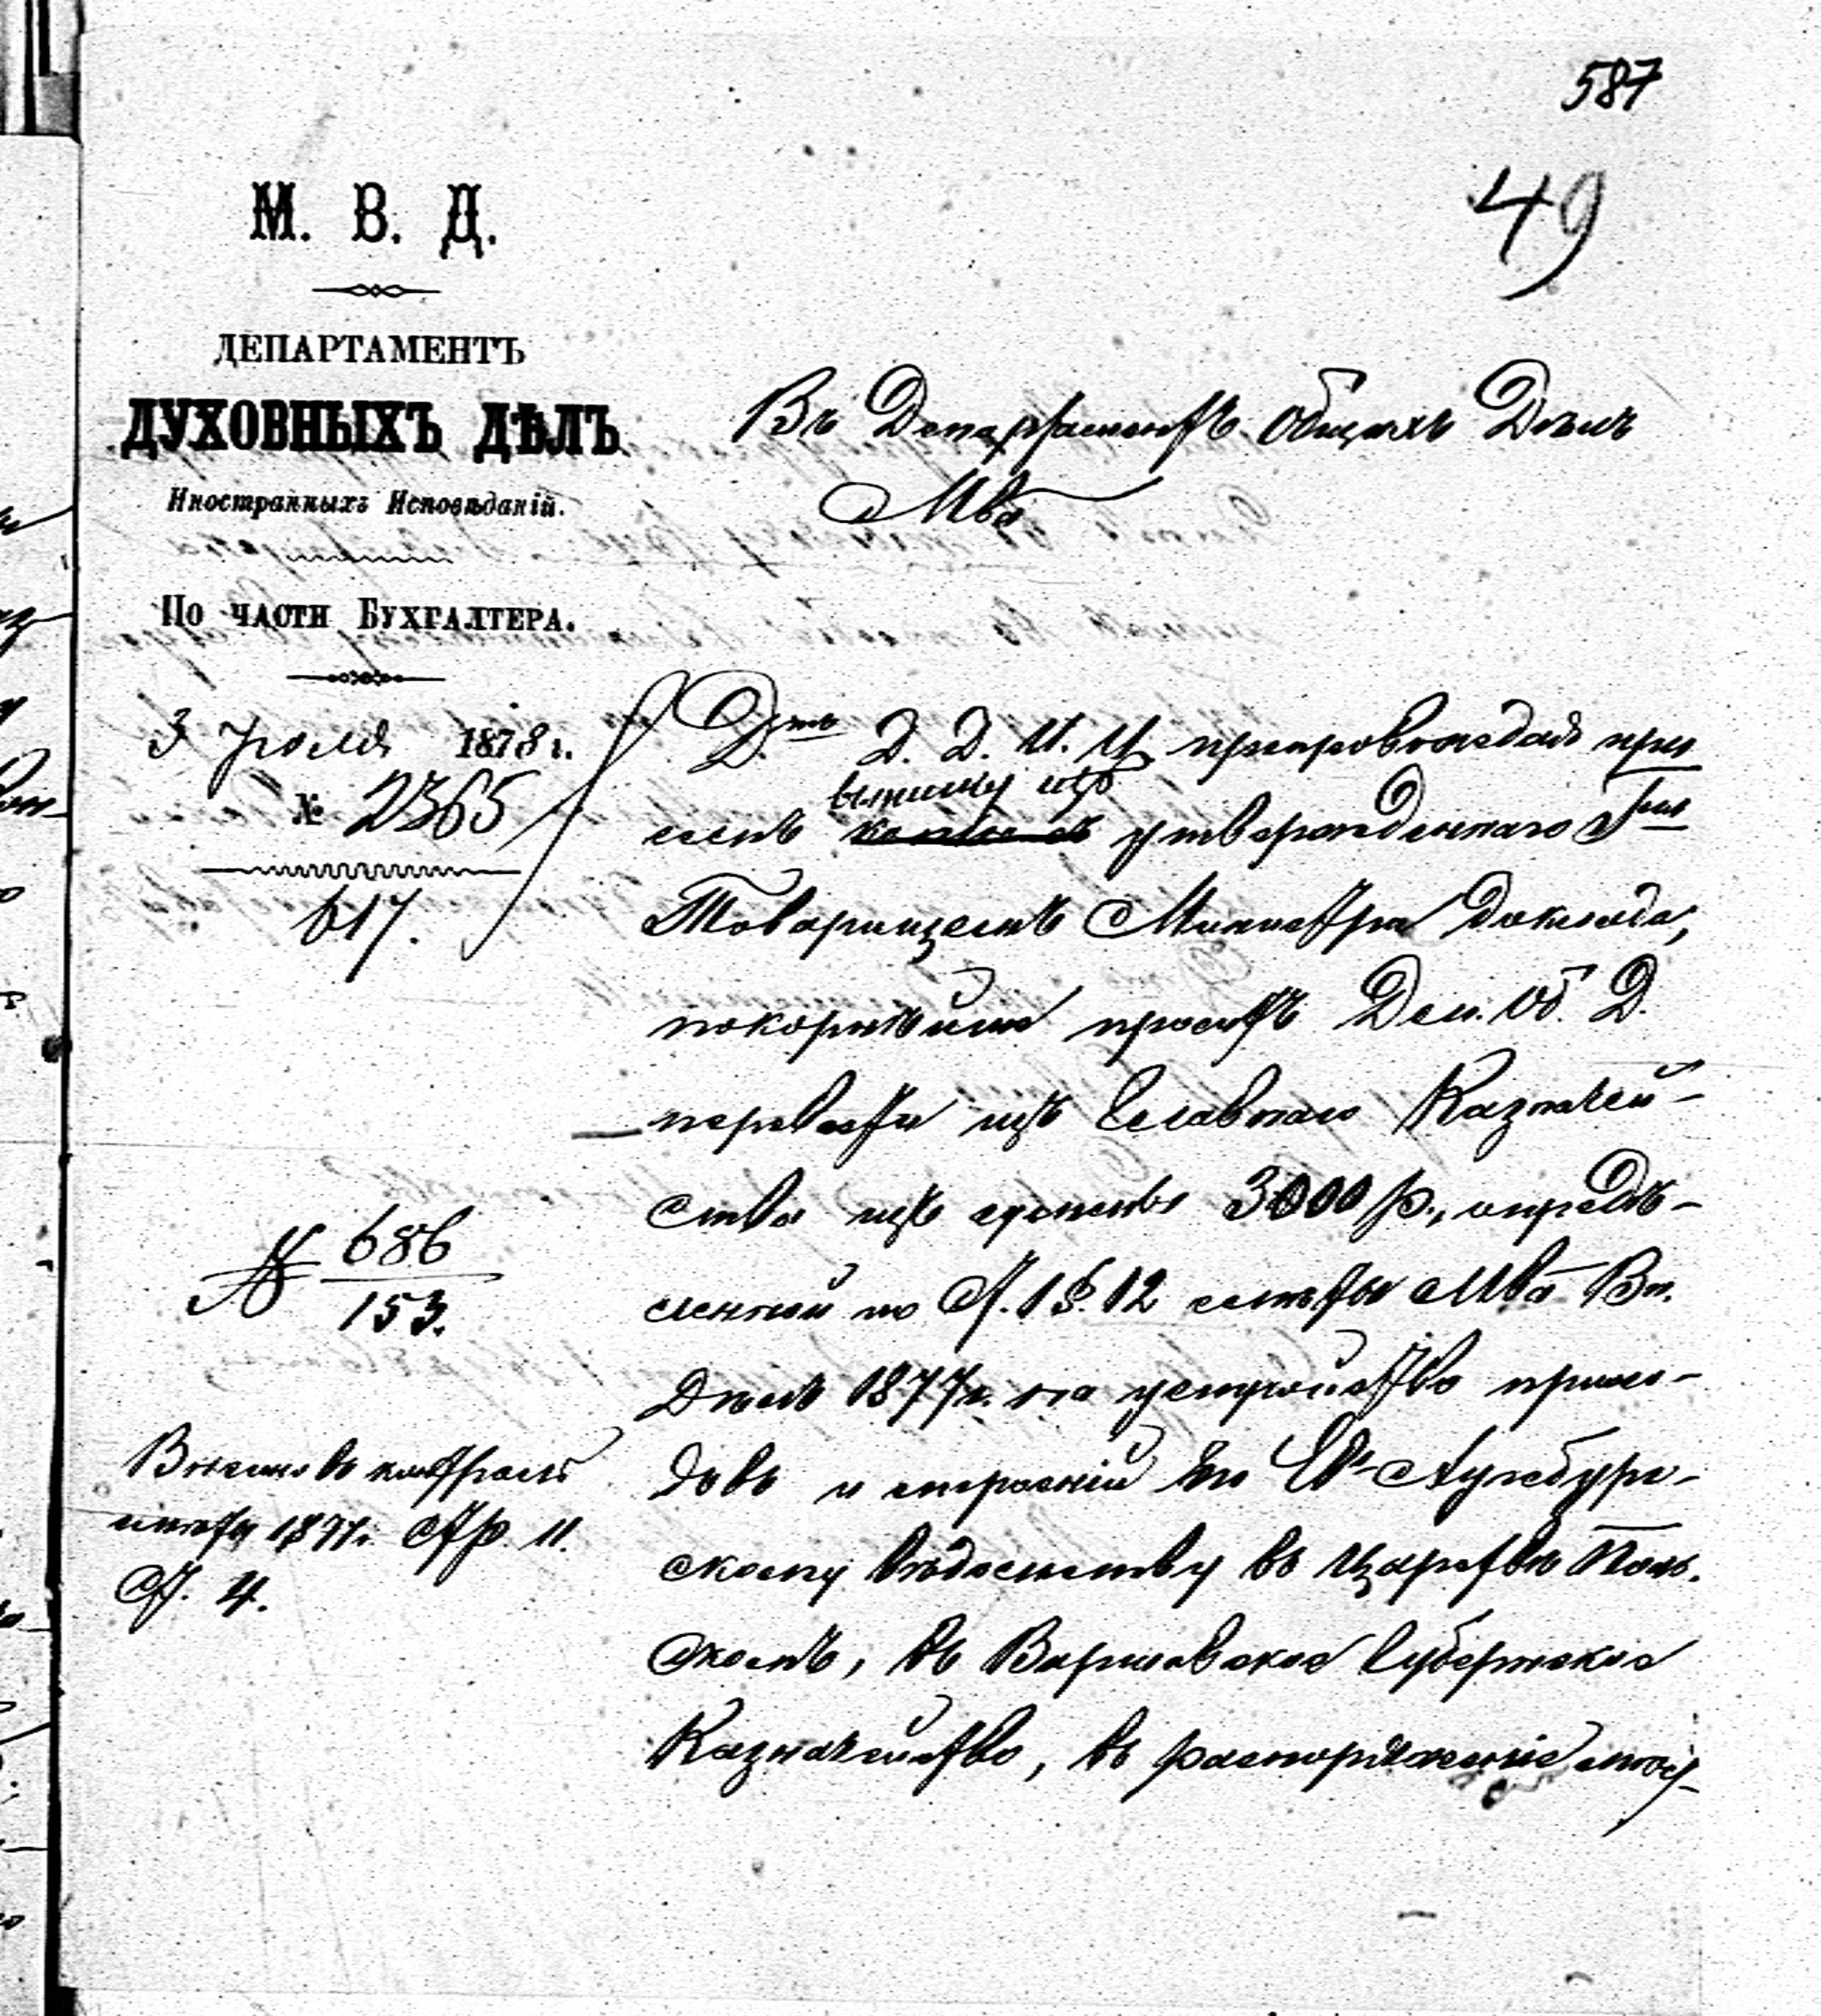 587
49
М. В. Д.
ДЕПАРТАМЕНТЪ
ДУХОВНЫХЪ ДѢЛЪ
Иностранныхъ Исповѣданій.
По части Бухгалтера.
3 Іюля 1878 г.
№ 2365
617.
№ 686
153.
Внесено въ контроль
1877 г. Стр. 11.
Ст. 4.
Въ Департаментъ Общихъ Дѣлъ
Мва
Д-тъ Д. Д. И. И. препровождая при
семъ выписку изъ утвержденнаго Г-мъ
Товарищемъ Министра доклада,
покорнѣйше проситъ Деп. Об. Д.
перевести изъ Главнаго Казначей-
ства изъ суммы 3000 р., опредѣ-
ленной по Ст. 1 §. 12 смѣты Мва Вн.
Дѣлъ 1877 г. на устройство прихо-
довъ и строеній по Ев.-Аугсбург-
скому вѣдомству въ Царствѣ Поль-
скомъ, въ Варшавское Губернское
Казначейство, въ распоряженіе